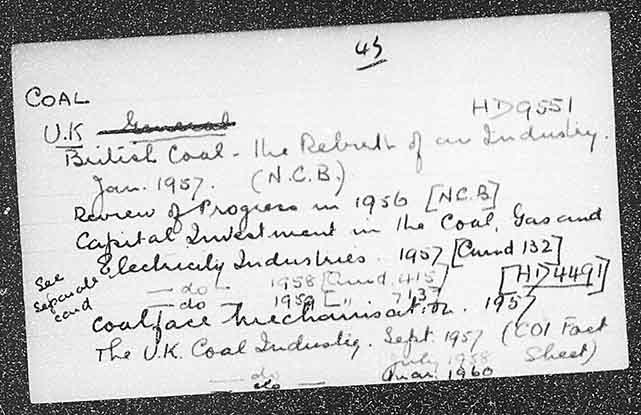 45
COAL
U.K General
HD9551
British Coal - the Rebirth of an Industry.
Jan. 1957. (N.C.B.)
Review of Progress in 1956 [N.C.B]
Capital Investment in the Coal, Gas and
Electricity Industries. 1957 [Cmnd 132]
See separate card
— do — 1958 [Cmnd. 415]
[HD4491]
— do 1959 [ " 713]
Coalface Mechanisation. 1957
The U.K. Coal Industry. Sept. 1957 (COI Fact
Sheet)
— do July 1958
— do — Mar. 1960